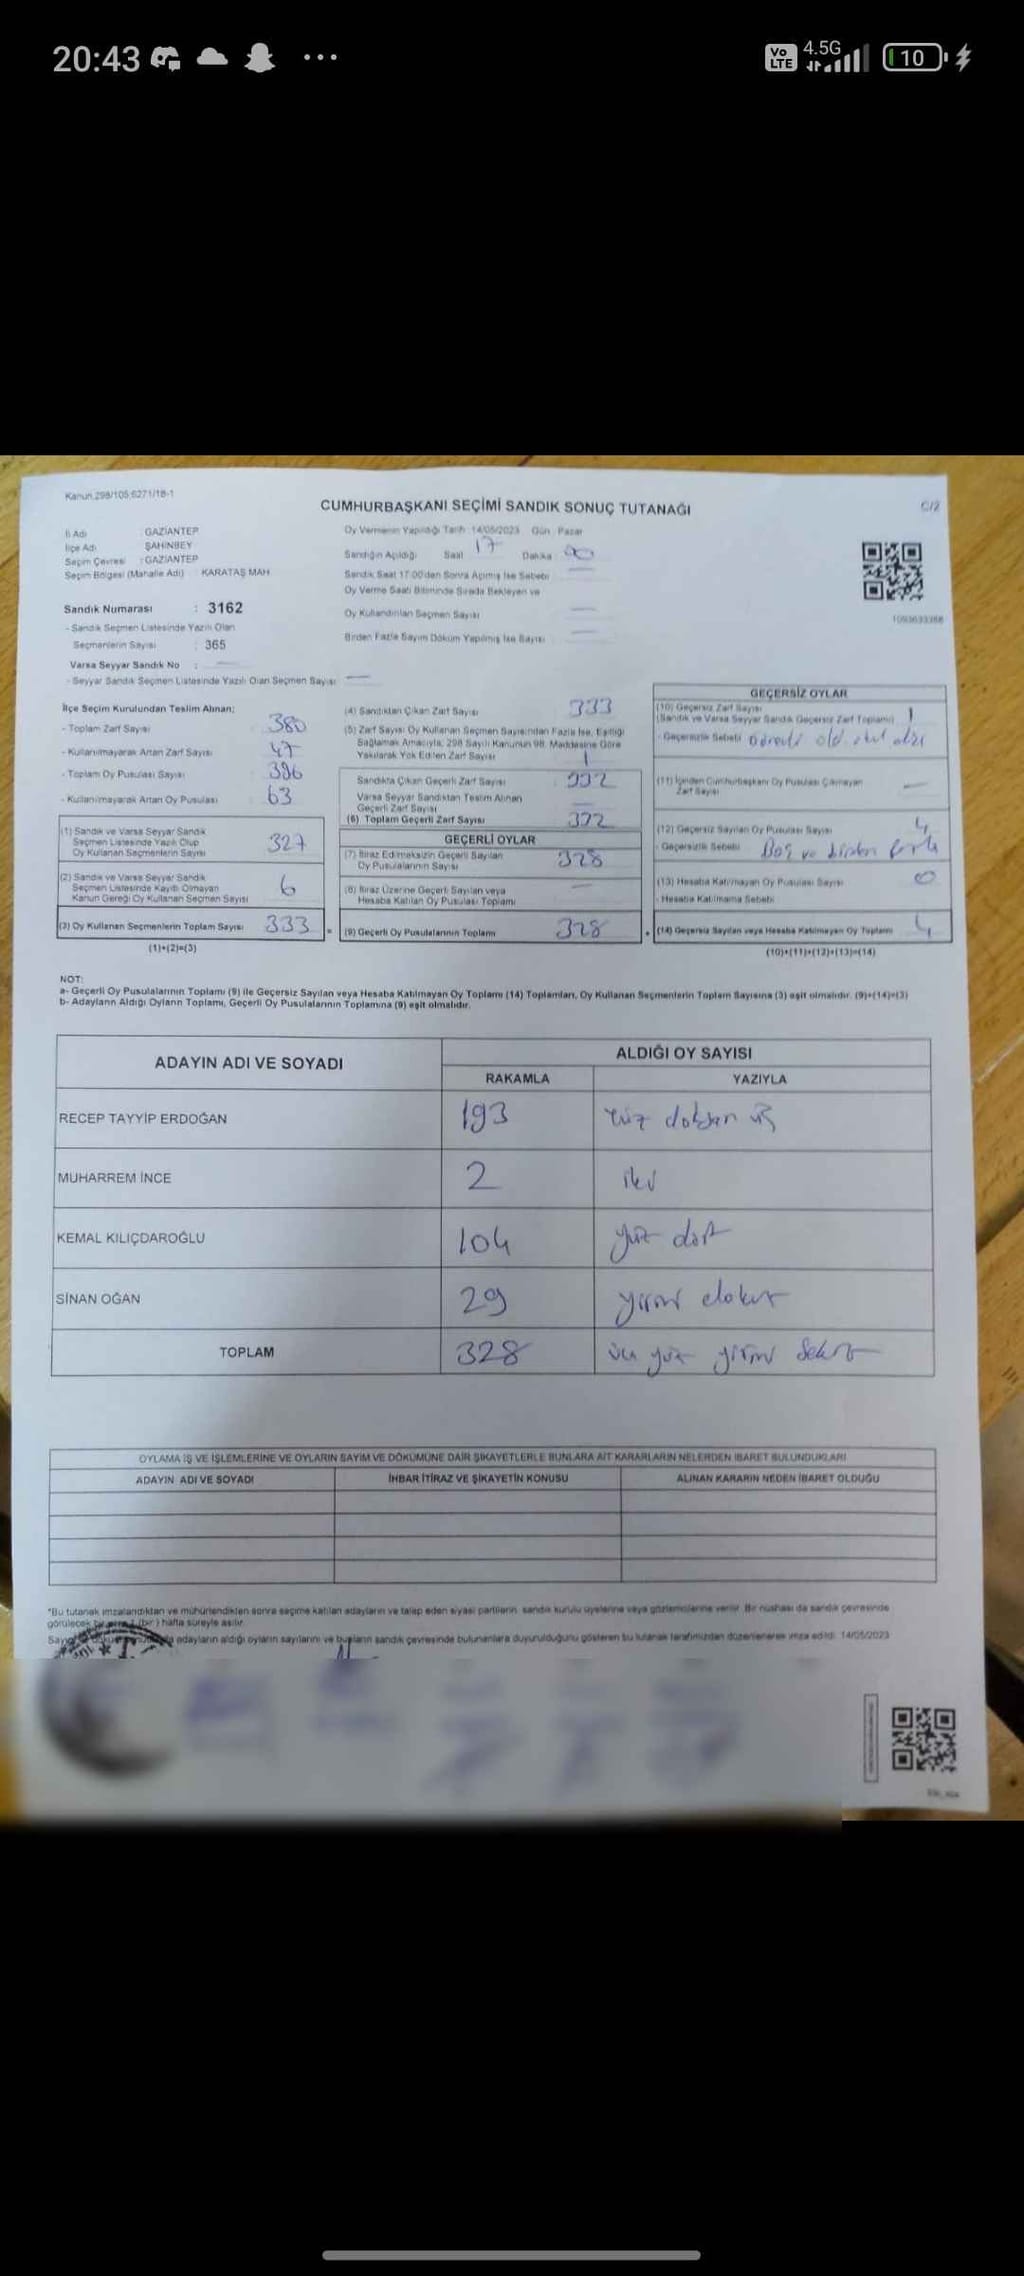 20:43
Vo LTE 4.5G 10
Kanun.298/105;6271/18-1
CUMHURBAŞKANI SEÇİMİ SANDIK SONUÇ TUTANAĞI
C/2
İl Adı : GAZİANTEP
İlçe Adı : ŞAHİNBEY
Seçim Çevresi : GAZİANTEP
Seçim Bölgesi (Mahalle Adı) : KARATAŞ MAH
Oy Vermenin Yapıldığı Tarih 14/05/2023 Gün Pazar
Sandığın Açıldığı Saat 17 Dakika 00
Sandık Saat 17:00'den Sonra Açımış İse Sebebi
Oy Verme Saati Bitiminde Sırada Bekleyen ve
Oy Kullandırılan Seçmen Sayısı
Birden Fazla Sayım Döküm Yapılmış İse Sayısı
Sandık Numarası : 3162
- Sandık Seçmen Listesinde Yazılı Olan
Seçmenlerin Sayısı : 365
Varsa Seyyar Sandık No : —
- Seyyar Sandık Seçmen Listesinde Yazılı Olan Seçmen Sayısı —
İlçe Seçim Kurulundan Teslim Alınan;
- Toplam Zarf Sayısı 380
- Kullanılmayarak Artan Zarf Sayısı 47
- Toplam Oy Pusulası Sayısı 396
- Kullanılmayarak Artan Oy Pusulası 63
(1) Sandık ve Varsa Seyyar Sandık
Seçmen Listesinde Yazılı Olup
Oy Kullanan Seçmenlerin Sayısı 327
(2) Sandık ve Varsa Seyyar Sandık
Seçmen Listesinde Kayıtlı Olmayan
Kanun Gereği Oy Kullanan Seçmen Sayısı 6
(3) Oy Kullanan Seçmenlerin Toplam Sayısı 333
(1)+(2)=(3)
(4) Sandıktan Çıkan Zarf Sayısı 333
(5) Zarf Sayısı Oy Kullanan Seçmen Sayısından Fazla İse, Eşitliği
Sağlamak Amacıyla, 298 Sayılı Kanunun 98. Maddesine Göre
Yakılarak Yok Edilen Zarf Sayısı 1
Sandıkta Çıkan Geçerli Zarf Sayısı 332
Varsa Seyyar Sandıktan Teslim Alınan
Geçerli Zarf Sayısı —
(6) Toplam Geçerli Zarf Sayısı 332
GEÇERLİ OYLAR
(7) İtiraz Edilmeksizin Geçerli Sayılan
Oy Pusulalarının Sayısı 328
(8) İtiraz Üzerine Geçerli Sayılan veya
Hesaba Katılan Oy Pusulası Toplamı —
(9) Geçerli Oy Pusulalarının Toplamı 328
GEÇERSİZ OYLAR
(10) Geçersiz Zarf Sayısı
(Sandık ve Varsa Seyyar Sandık Geçersiz Zarf Toplamı) 1
- Geçersizlik Sebebi
(11) İçinden Cumhurbaşkanı Oy Pusulası Çıkmayan
Zarf Sayısı —
(12) Geçersiz Sayılan Oy Pusulası Sayısı 4
- Geçersizlik Sebebi Boş ve birden fazla
(13) Hesaba Katılmayan Oy Pusulası Sayısı 0
- Hesaba Katılmama Sebebi
(14) Geçersiz Sayılan veya Hesaba Katılmayan Oy Toplamı 4
(10)+(11)+(12)+(13)=(14)
NOT:
a- Geçerli Oy Pusulalarının Toplamı (9) ile Geçersiz Sayılan veya Hesaba Katılmayan Oy Toplamı (14) Toplamları, Oy Kullanan Seçmenlerin Toplam Sayısına (3) eşit olmalıdır. (9)+(14)=(3)
b- Adayların Aldığı Oyların Toplamı, Geçerli Oy Pusulalarının Toplamına (9) eşit olmalıdır.
ADAYIN ADI VE SOYADI
ALDIĞI OY SAYISI
RAKAMLA YAZIYLA
RECEP TAYYİP ERDOĞAN 193 Yüz doksan üç
MUHARREM İNCE 2 iki
KEMAL KILIÇDAROĞLU 104 yüz dört
SİNAN OĞAN 29 yirmi dokuz
TOPLAM 328 üç yüz yirmi sekiz
OYLAMA İŞ VE İŞLEMLERİNE VE OYLARIN SAYIM VE DÖKÜMÜNE DAİR ŞİKAYETLERLE BUNLARA AİT KARARLARIN NELERDEN İBARET BULUNDUKLARI
ADAYIN ADI VE SOYADI İHBAR İTİRAZ VE ŞİKAYETİN KONUSU ALINAN KARARIN NEDEN İBARET OLDUĞU
*Bu tutanak imzalandıktan ve mühürlendikten sonra seçime katılan adayların ve talep eden siyasi partilerin sandık kurulu üyelerine veya gözlemcilerine verilir. Bir nüshası da sandık çevresinde
görülecek bir yere 1 (bir) hafta süreyle asılır.
adayların aldığı oyların sayılarını ve bunların sandık çevresinde bulunanlara duyurulduğunu gösteren bu tutanak tarafımızdan düzenlenerek imza edildi. 14/05/2023